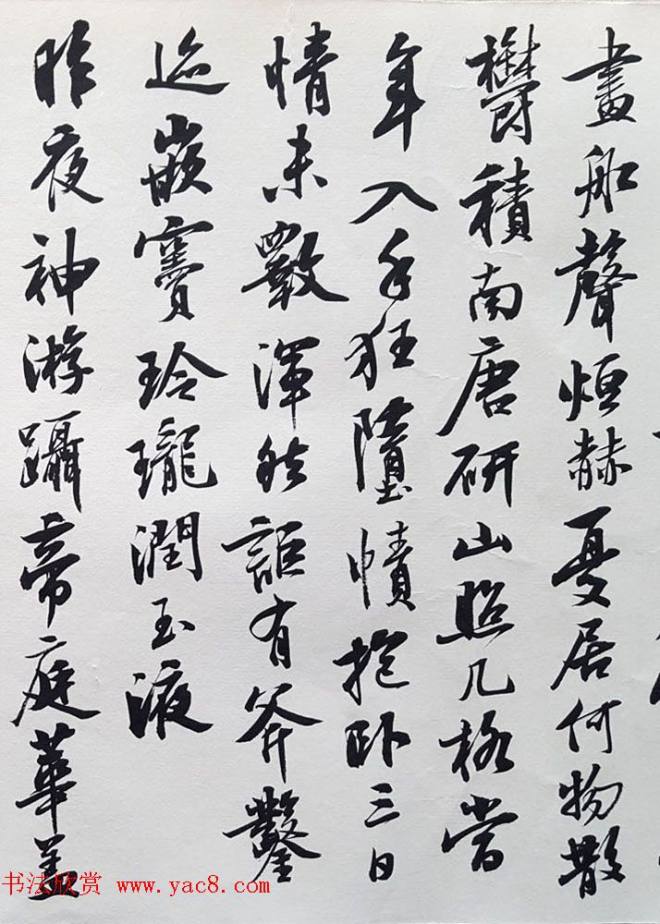 畫船聲烜赫憂居何物散
鬱積南唐研山照几格當
年入手狂墮幘抱卧三日
情未斁渾然詎有斧鑿
迹嵌竇玲瓏潤玉液
昨夜神游躡帝庭華蓋
书法欣赏 www.yac8.com